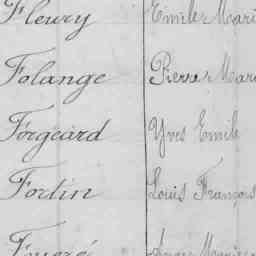 Fleury Emile Mari
Folange Pierre Mari
Forgeard Yves Emile
Fortin Louis François
Foueré